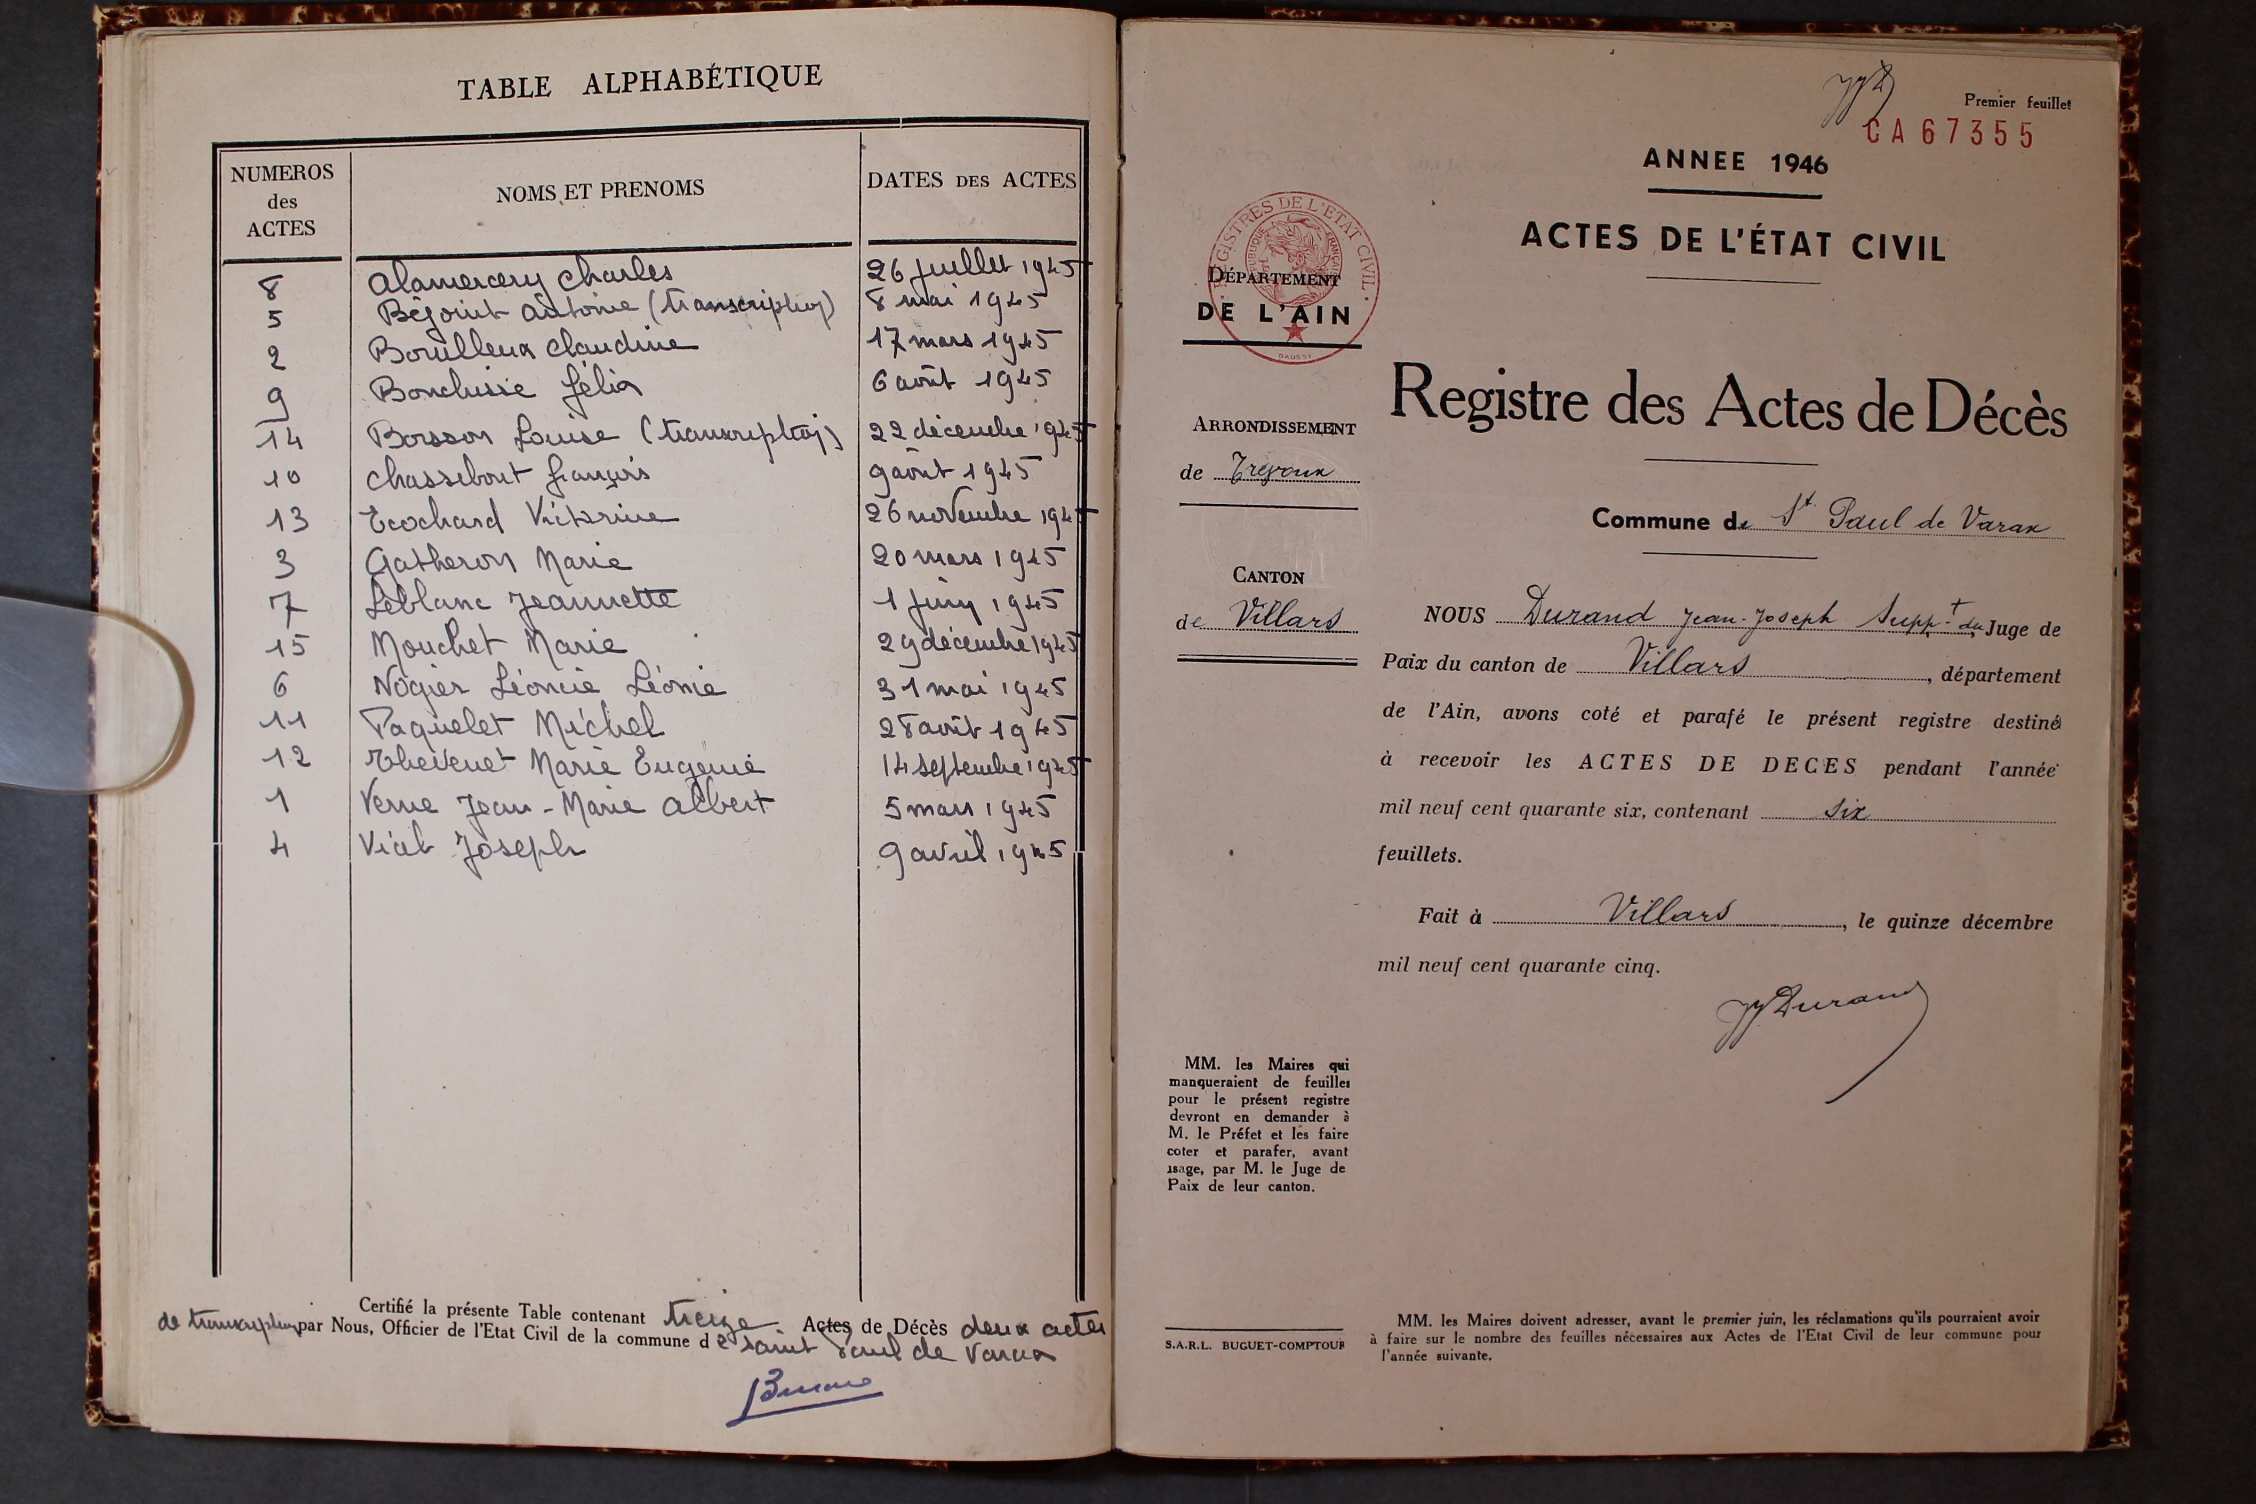 TABLE ALPHABÉTIQUE
NUMEROS
des
ACTES
NOMS ET PRENOMS
DATES DES ACTES
8 Alamercery Charles 26 juillet 1945
5 Béjoint Antoine (transcription) 8 mai 1945
2 Bouilleux Claudine 17 mars 1945
9 Félix 6 août 1945
14 Bosson Louise (transcription) 22 décembre 1945
10 Chassibout François 9 août 1945
13 Ecochard Victorine 26 novembre 1945
3 Gatheron Marie 20 mars 1945
7 Leblanc Jeannette 1 juin 1945
15 Mouchet Marie 29 décembre 1945
6 Nogier Léoncie Léonie 31 mai 1945
11 Paquelet Michel 28 août 1945
12 Thevenet Marie Eugénie 14 septembre 1945
1 Verne Jean-Marie Albert 5 mars 1945
4 Vial Joseph 9 avril 1945
Certifié la présente Table contenant treize Actes de Décès deux actes
de transcription par Nous, Officier de l'Etat Civil de la commune de Saint Paul de Varax
Premier feuillet
CA 67355
ANNEE 1946
ACTES DE L'ÉTAT CIVIL
REGISTRES DE L'ETAT CIVIL
REPUBLIQUE FRANÇAISE
DÉPARTEMENT
DE L'AIN
Registre des Actes de Décès
ARRONDISSEMENT
de Trévoux
Commune de St Paul de Varax
CANTON
de Villars
NOUS Durand Jean-Joseph Suppt du Juge de
Paix du canton de Villars, département
de l'Ain, avons coté et parafé le présent registre destiné
à recevoir les ACTES DE DECES pendant l'année
mil neuf cent quarante six, contenant six
feuillets.
Fait à Villars, le quinze décembre
mil neuf cent quarante cinq.
JJDurand
MM. les Maires qui
manqueraient de feuilles
pour le présent registre
devront en demander à
M. le Préfet et les faire
coter et parafer, avant
usage, par M. le Juge de
Paix de leur canton.
S.A.R.L. BUGUET-COMPTOUR
MM. les Maires doivent adresser, avant le premier juin, les réclamations qu'ils pourraient avoir
à faire sur le nombre des feuilles nécessaires aux Actes de l'Etat Civil de leur commune pour
l'année suivante.